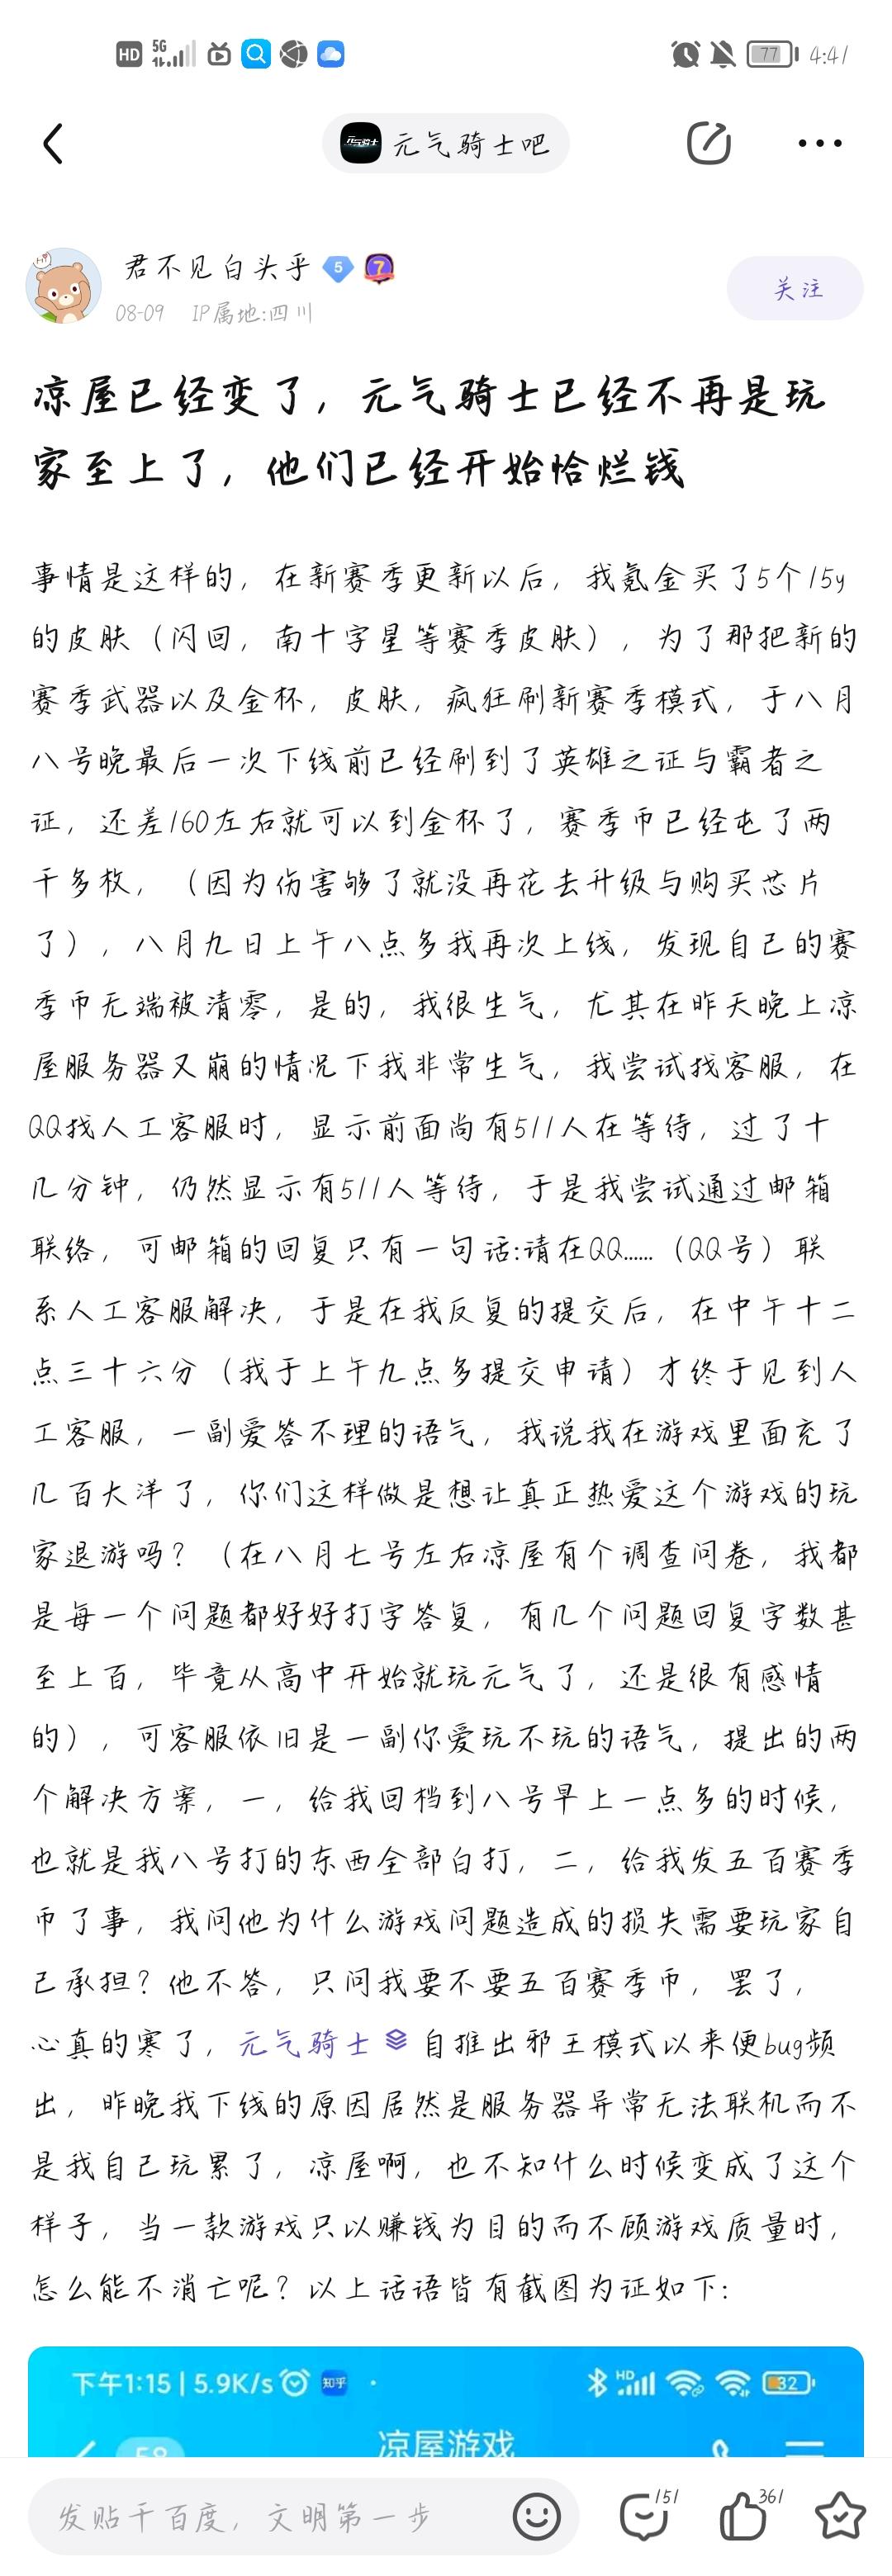 HD 5G 77 4:41
元气骑士吧
君不见白头乎 5 7
08-09 IP属地:四川
关注
凉屋已经变了，元气骑士已经不再是玩
家至上了，他们已经开始恰烂钱
事情是这样的，在新赛季更新以后，我氪金买了5个15y
的皮肤（闪回，南十字星等赛季皮肤），为了那把新的
赛季武器以及金杯，皮肤，疯狂刷新赛季模式，于八月
八号晚最后一次下线前已经刷到了英雄之证与霸者之
证，还差160左右就可以到金杯了，赛季币已经屯了两
千多枚，（因为伤害够了就没再花去升级与购买芯片
了），八月九日上午八点多我再次上线，发现自己的赛
季币无端被清零，是的，我很生气，尤其在昨天晚上凉
屋服务器又崩的情况下我非常生气，我尝试找客服，在
QQ找人工客服时，显示前面尚有511人在等待，过了十
几分钟，仍然显示有511人等待，于是我尝试通过邮箱
联络，可邮箱的回复只有一句话:请在QQ……（QQ号）联
系人工客服解决，于是在我反复的提交后，在中午十二
点三十六分（我于上午九点多提交申请）才终于见到人
工客服，一副爱答不理的语气，我说我在游戏里面充了
几百大洋了，你们这样做是想让真正热爱这个游戏的玩
家退游吗？（在八月七号左右凉屋有个调查问卷，我都
是每一个问题都好好打字答复，有几个问题回复字数甚
至上百，毕竟从高中开始就玩元气了，还是很有感情
的），可客服依旧是一副你爱玩不玩的语气，提出的两
个解决方案，一，给我回档到八号早上一点多的时候，
也就是我八号打的东西全部白打，二，给我发五百赛季
币了事，我问他为什么游戏问题造成的损失需要玩家自
己承担？他不答，只问我要不要五百赛季币，罢了，
心真的寒了，元气骑士 自推出邪王模式以来便bug频
出，昨晚我下线的原因居然是服务器异常无法联机而不
是我自己玩累了，凉屋啊，也不知什么时候变成了这个
样子，当一款游戏只以赚钱为目的而不顾游戏质量时，
怎么能不消亡呢？以上话语皆有截图为证如下:
下午1:15 | 5.9K/s 知乎 HD 32
58 凉屋游戏
发贴千百度，文明第一步 151 361